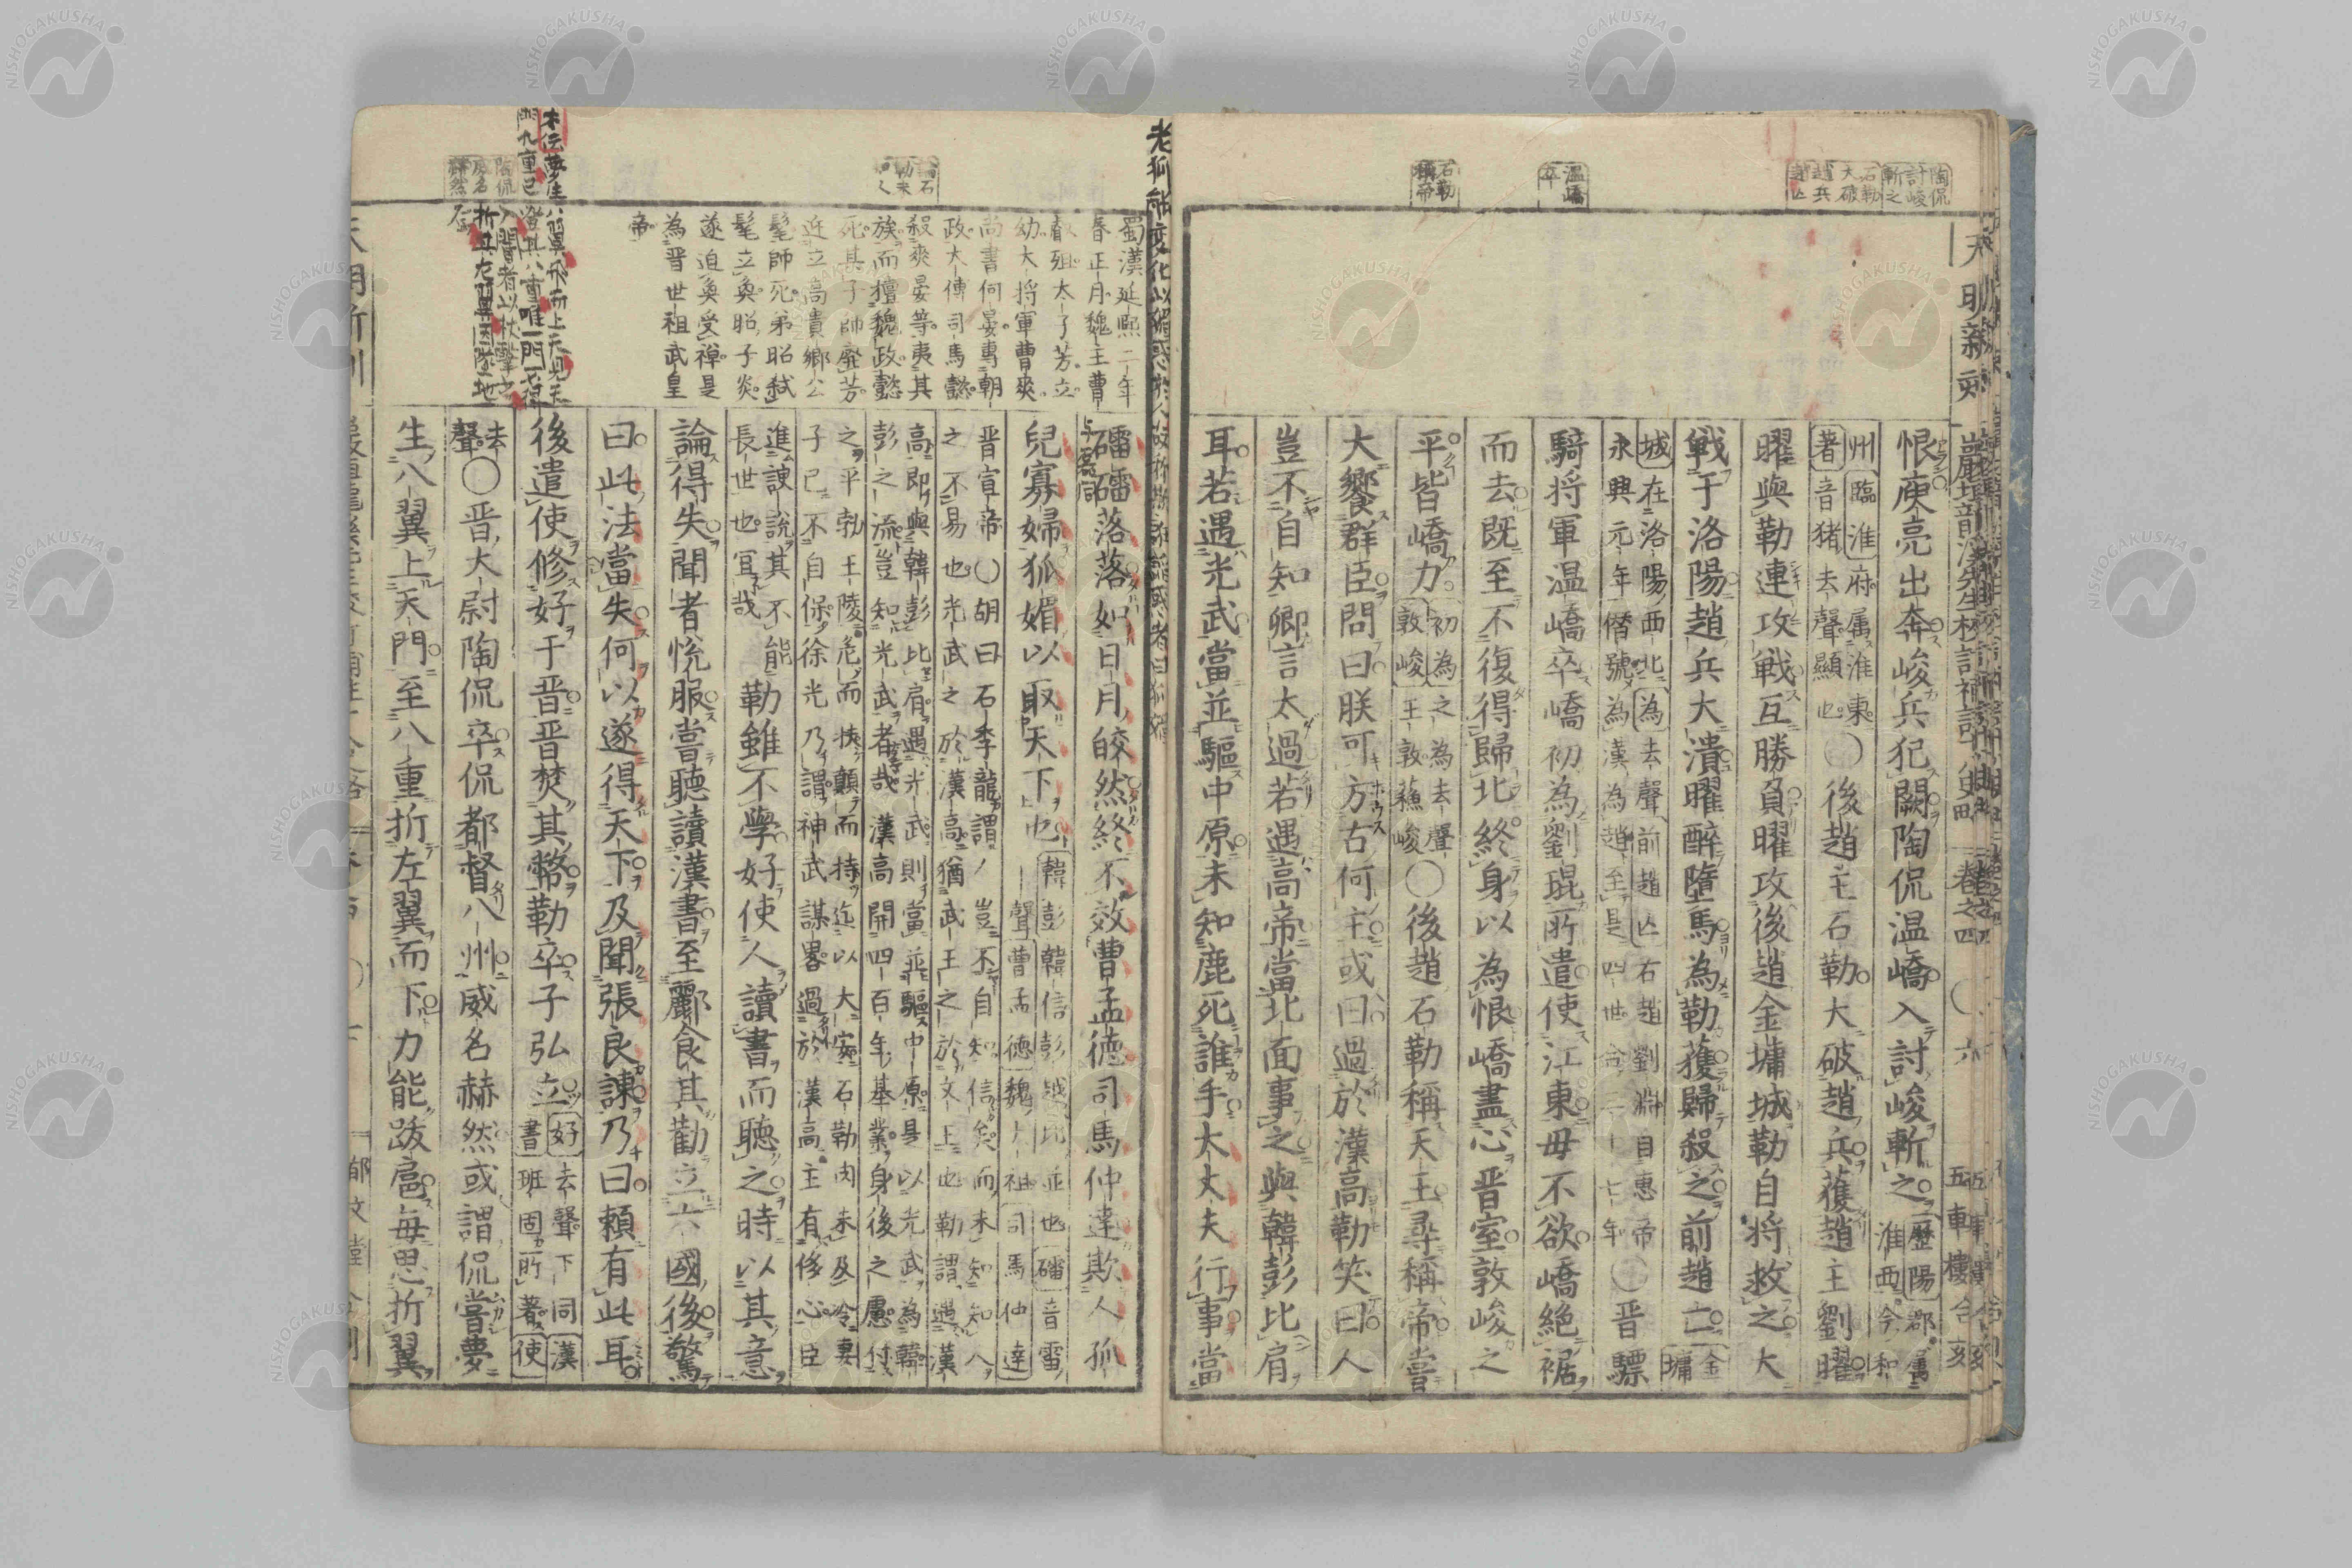 陶侃
討峻
斬之
石勒
大破
趙兵
趙亡
温嶠
卒
石勒
稱帝
天明新刻
巖垣龍溪先生校訂補註
卷之四
六
五車樓合刻
恨庾亮出奔峻兵犯闕陶侃温嶠入討峻斬之
歷陽郡屬
淮西今和
州臨淮府屬淮東
著音猪去聲顯也
〇後趙主石勒大破趙兵獲趙主劉曜
曜與勒連攻戰互勝負曜攻後趙金墉城勒自將救之大
戰于洛陽趙兵大潰曜醉墮馬為勒獲歸殺之前趙亡
金
墉
城在洛陽西北為去聲前趙亡右趙劉淵自惠帝
永興元年僭號為漢為趙至是四世合二十七年
〇晋驃
騎将軍温嶠卒嶠初為劉琨所遣使江東毋不欲嶠絶裾
而去既至不復得歸北終身以為恨嶠盡心晋室敦峻之
平皆嶠力
初為之為去聲
敦峻王敦蘇峻
〇後趙石勒稱天王尋稱帝嘗
大饗群臣問曰朕可方古何主或曰過於漢高勒笑曰人
豈不自知卿言太過若遇高帝當北面事之與韓彭比肩
耳若遇光武當並驅中原未知鹿死誰手太丈夫行事當
老狐能變化以媚惑於人故称
礌礌落落如日月皎然終不效曹孟德司馬仲達欺人孤
与磊同
兒寡婦狐媚以取天下也
韓彭韓信彭越比並也礌音雷
聲曹孟德魏太祖司馬仲達
晋宣帝〇胡曰石季龍謂豈不自知信矣而未知知人
之不易也光武之於漢高猶武王之於文王也勒謂遇漢
高即與韓彭比肩遇光武則當並驅中原是以光武為韓
彭之流豈知光武者哉漢高開四百年基業身後之慮付
之平勃王陵危而扶顛而持迄以大安石勒肉未及冷妻
子已不自保徐光乃謂神武謀畧過於漢高主有侈心臣
進諛説其不能
長世也冝哉
勒雖不學好使人讀書而聽之時以其意
論得失聞者悦服嘗聽讀漢書至酈食其勸立六國後驚
曰此法當失何以遂得天下及聞張良諫乃曰頼有此耳
後遣使修好于晋晋焚其幣勒卒子弘立
好去聲下同漢
書班固所著使
去
聲
〇晋大尉陶侃卒侃都督八州威名赫然或謂侃嘗夢
生八翼上天門至八重折左翼而下力能跋扈毎思折翼
蜀漢延熙二年
春正月魏主曹
叡殂太子芳立
幼大将軍曹爽
尚書何晏專朝
政大傅司馬懿
殺爽晏等夷其
族而擅魏政懿
死其子師廢芳
近立高貴郷公
髦師死弟昭弑
髦立奐昭子炎
遂迫奐受禅是
為晋世祖武皇
帝
陶侃
威名
赫然
本伝夢生八翼飛而上天見天
門九重已登其八唯一門不得
入閽者以杖撃之
折其左翼因墜地